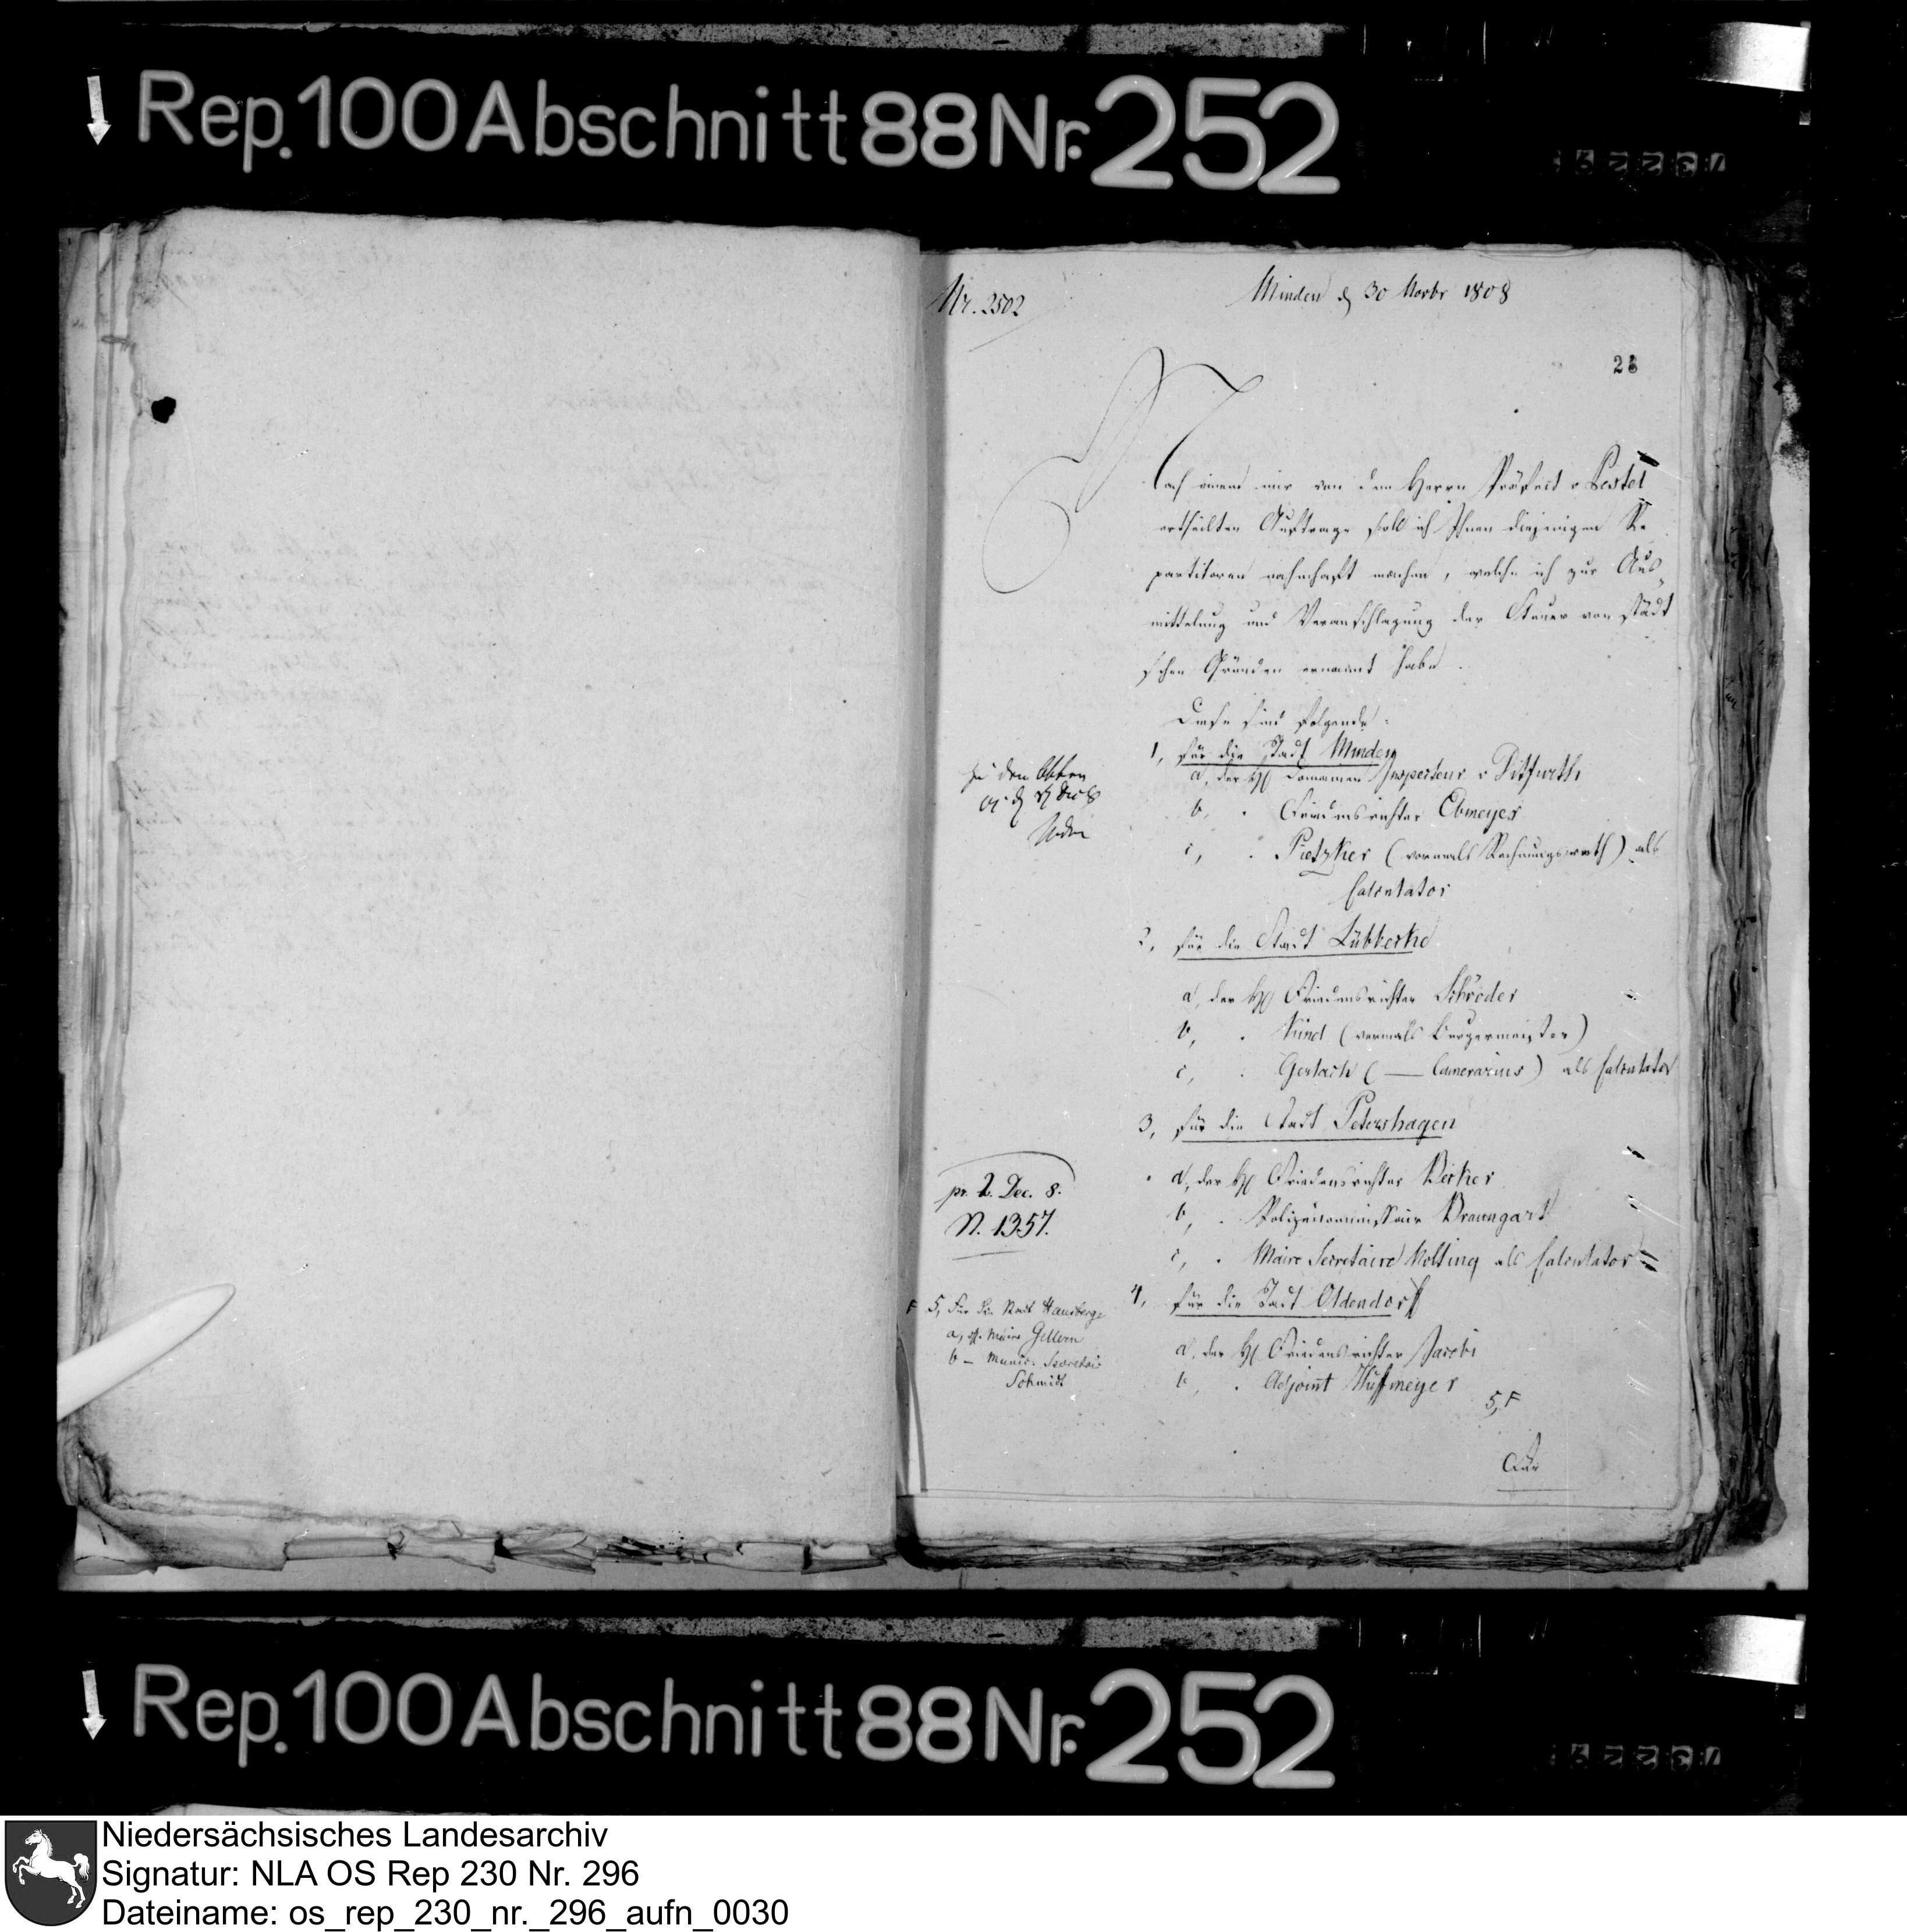 Rep. 100 Abschnitt 88 Nr. 252
73229
Nr. 2502
Minden d 30 Novbr 1808
23
Nach einem mir von dem Herrn Präfect v Pestel
ertheilten Auftrage soll ich Ihnen diejenigen Re
partitoren nahmhaft machen, welche ich zur Aus„
mittelung und Veranschlagung der Steuer von städt
schen Gründen ernannt habe.
Diese sind folgende:
1, für die Stadt Minden
a, der H Domainen Inspecteur v Ditfurth
b, " Friedensrichter Ebmeyer
c, " Pietzker (vormals Rechnungsrath) als
Calculator
2, für die Stadt Lübbecke
a, der H Friedensrichter Schröder
b, " Kind (vormals Burgermeister)
c, " Gerlach ( — Camerarius) als Calculator
3, für die Stadt Petershagen
a, der H Friedensrichter Becker
b, " Polizeicommissair Braungart
c, " Maire Secretaire Nolting als Calculator
4, für die Stadt Oldendorff
a, der H Friedensrichter Jacobi
b, " Adjoint Huffmeyer
5, F
Für
zu den Akten
pr. 2. Dec. 8.
N. 1357.
F 5, Für die Stadt Hausberge
a, H. Maire Gellern
b — Munic. Secretair
Schmidt
Rep. 100 Abschnitt 88 Nr. 252
73229
Niedersächsisches Landesarchiv
Signatur: NLA OS Rep 230 Nr. 296
Dateiname: os_rep_230_nr._296_aufn_0030